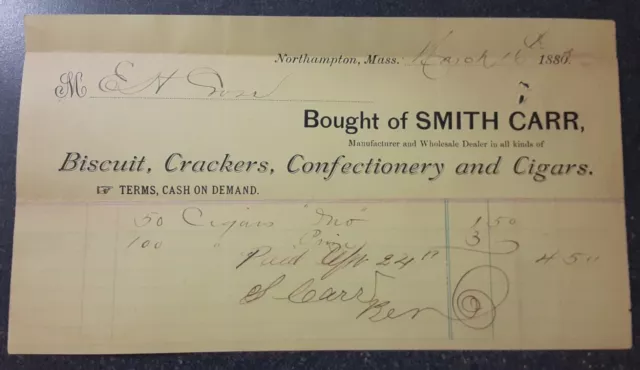 Northampton, Mass. March 16th 188
M E H
Bought of SMITH CARR,
Manufacturer and Wholesale Dealer in all kinds of
Biscuit, Crackers, Confectionery and Cigars.
☞ TERMS, CASH ON DEMAND.
50 Cigars 1 50
100 " 3
Paid 24" 4 50
S Carr